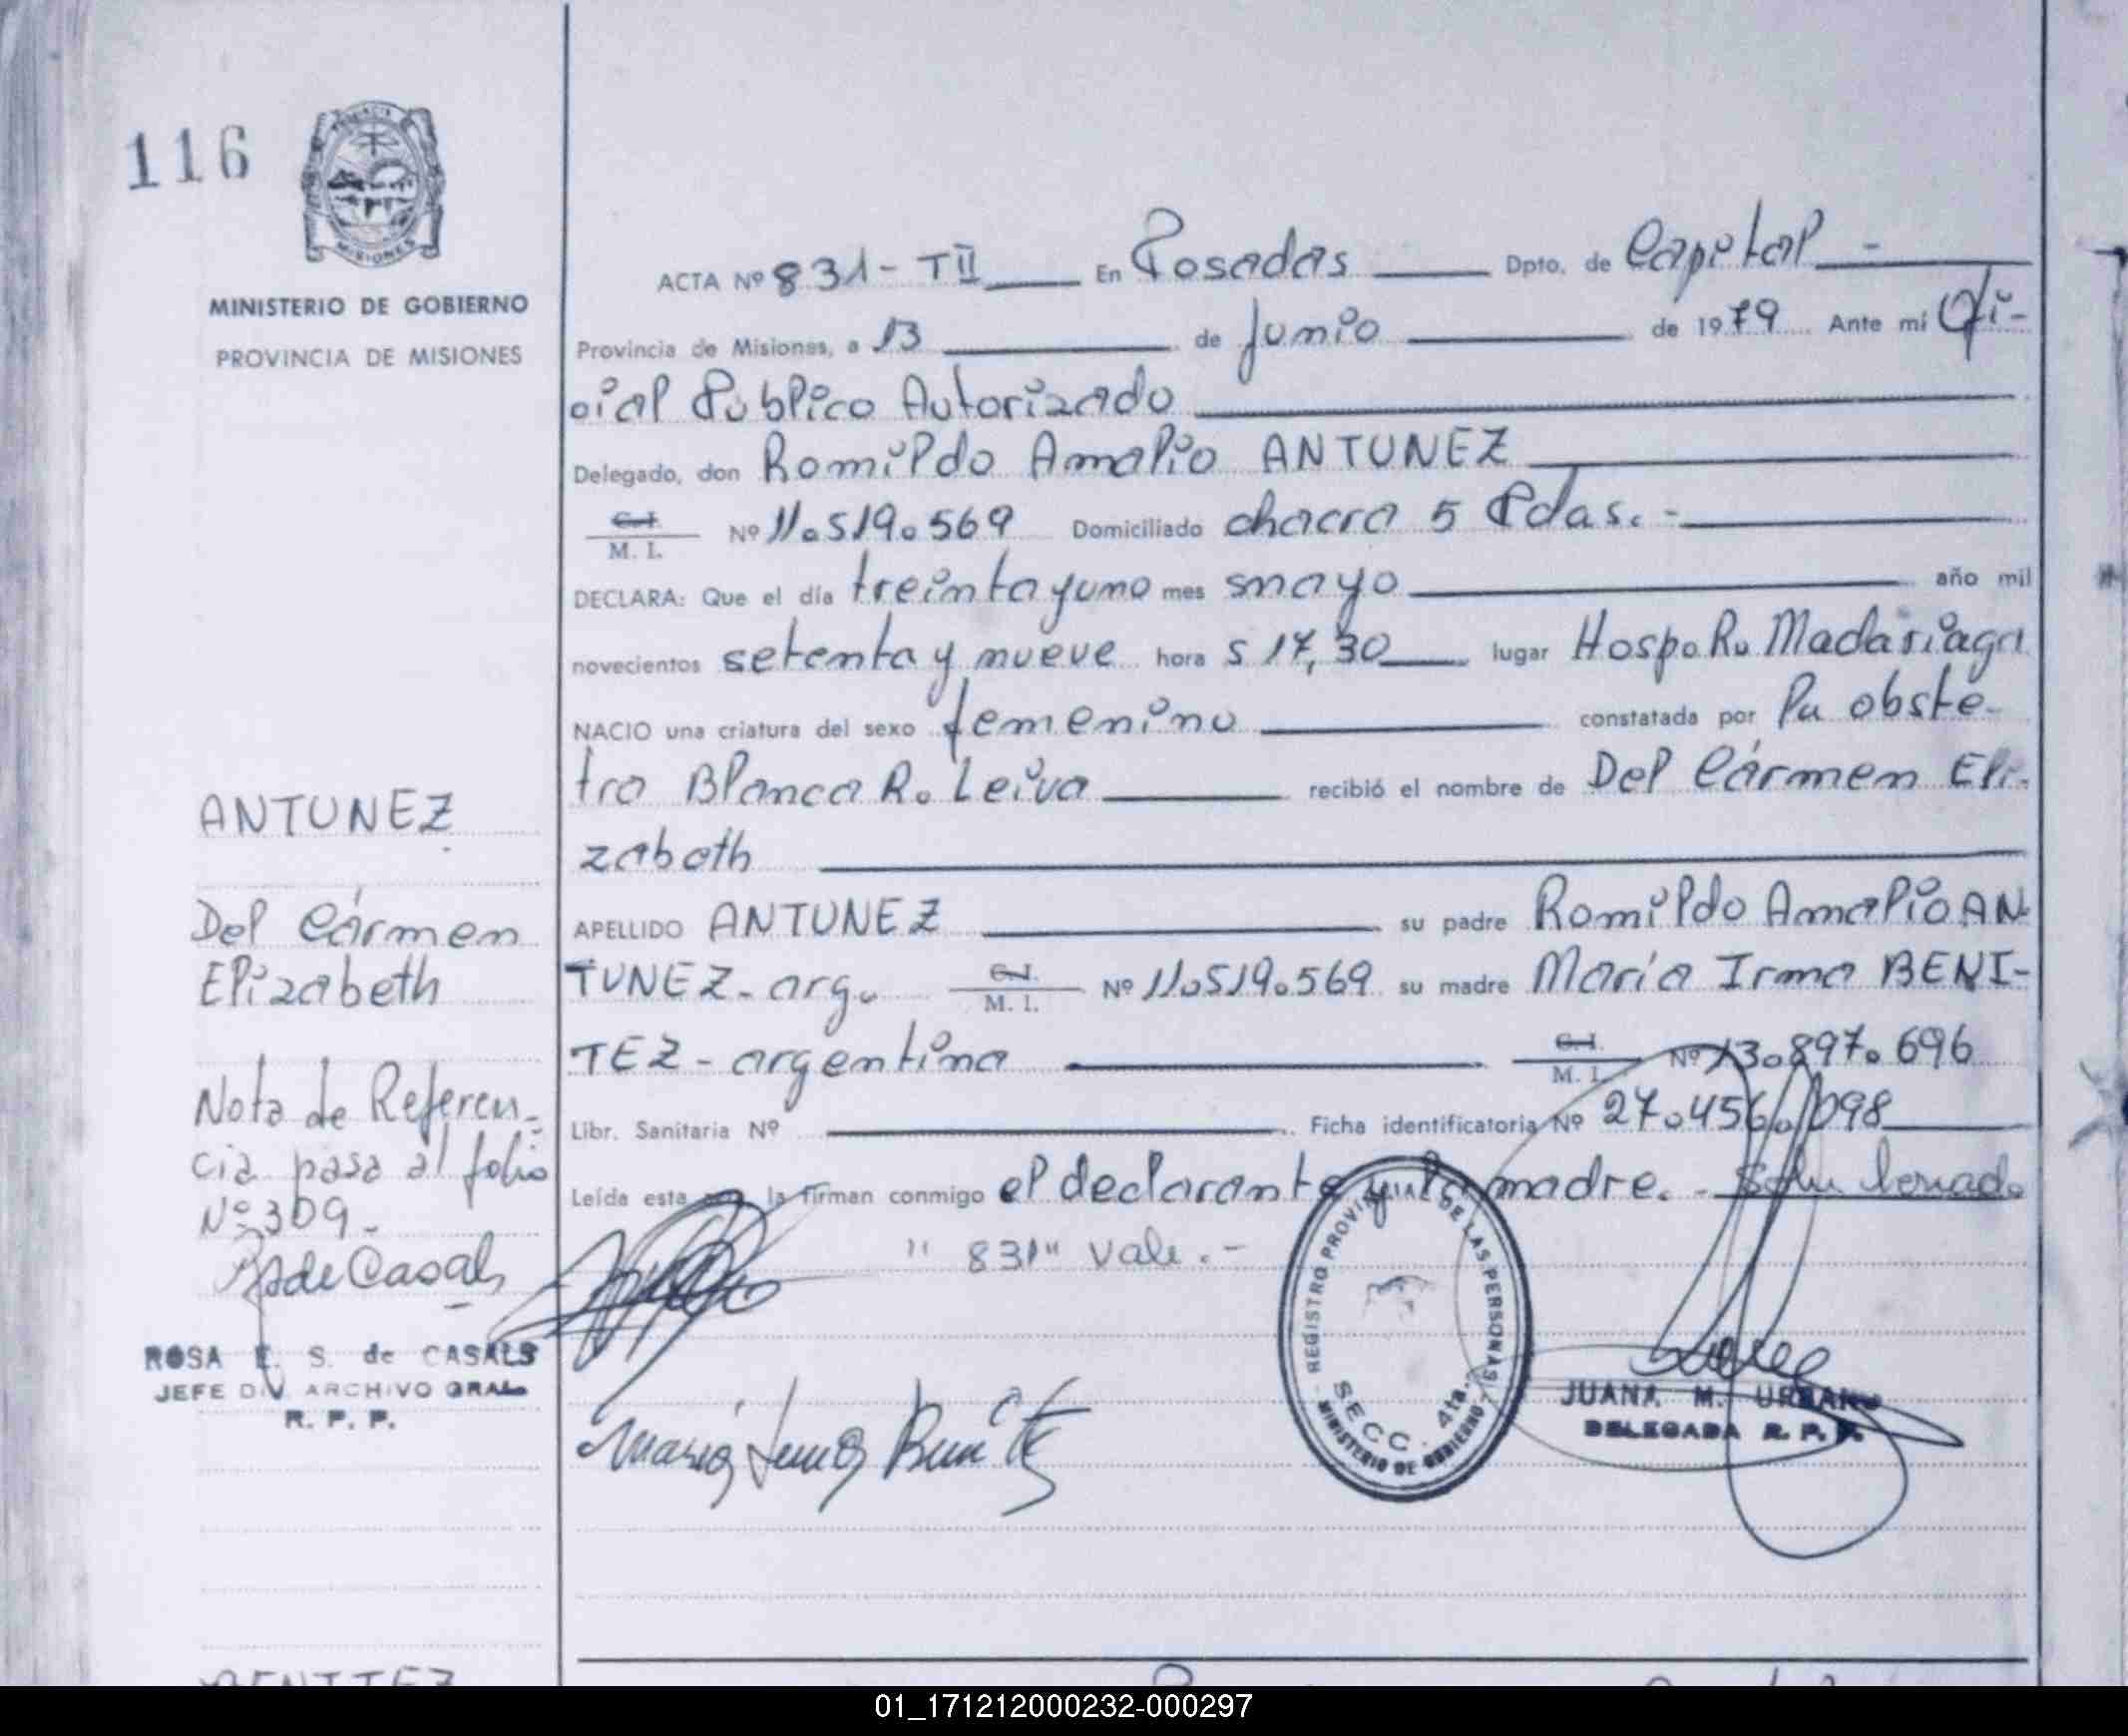 116
PROVINCIA
MISIONES
MINISTERIO DE GOBIERNO
PROVINCIA DE MISIONES
ACTA Nº 831- TII En Posadas Dpto. de Capital -
Provincia de Misiones, a 13 de junio de 1979 Ante mí Ofi-
cial Público Autorizado
Delegado, don Romildo Amalio ANTUNEZ
C.I. M. I. Nº 11.519.569 Domiciliado chacra 5 Pdas. -
DECLARA: Que el día treinta y uno mes mayo año mil
novecientos setenta y nueve hora s 17,30 lugar Hosp. R. Madariaga
NACIO una criatura del sexo femenino constatada por la obste-
tra Blanca R. Leiva recibió el nombre de Del Cármen Eli-
zabeth
APELLIDO ANTUNEZ su padre Romildo Amalio AN
TUNEZ - arg. C.I. M. I. Nº 11.519.569 su madre María Irma BENI-
TEZ - argentina C.I. M. I. Nº 13.897.696
Libr. Sanitaria Nº Ficha identificatoria Nº 27.456.098
Leída esta la firman conmigo el declarante y la madre. -
"831" vale. -
ANTUNEZ
Del Cármen
Elizabeth
Nota de Referen-
cia pasa al folio
Nº 309.-
R de Casals
ROSA E. S. de CASALS
JEFE DIV. ARCHIVO GRAL.
R. P. P.
María Irma Benítez
REGISTRO PROVINCIAL DE LAS PERSONAS
SECC. 4ta.
MINISTERIO DE GOBIERNO
JUANA M. URBANO
DELEGADA R. P. P.
BENITEZ
01_171212000232-000297